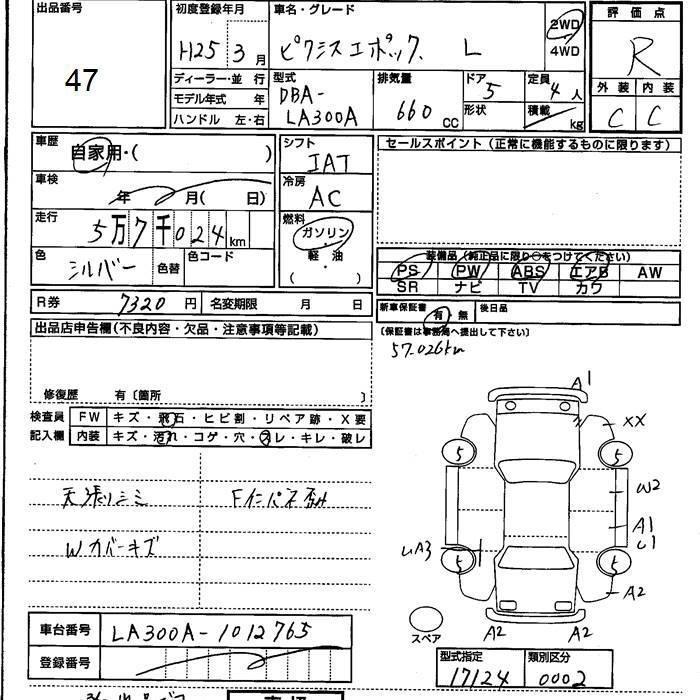 出品番号
47
初度登録年月
H25 3月
車名・グレード
ピクシスエポック L
2WD
4WD
評価点
R
外装 内装
C C
ディーラー・並行
モデル年式 年
ハンドル 左・右
型式
DBA-
LA300A
排気量
660 CC
ドア
5
形状
定員
4人
積載
kg
車歴
自家用・( )
車検
年 月( 日)
走行
5万7千024km
色
シルバー
色替
色コード
シフト
IAT
冷房
AC
燃料
ガソリン
・
軽油
( )
セールスポイント(正常に機能するものに限ります)
装備品(純正品に限り○をつけてください)
PS PW ABS エアB AW
SR ナビ TV カワ
R券 7320円
名変期限 月 日
新車保証書
有・無
後日品
(保証書は事務局へ提出して下さい)
57.026km
出品店申告欄(不良内容・欠品・注意事項等記載)
修復歴 有〔箇所 〕
検査員
記入欄
FW キズ・飛石・ヒビ割・リペア跡・X要
内装 キズ・汚れ・コゲ・穴・スレ・キレ・破レ
天張りシミ
Wカバーキズ
A1
XX
5
5
W2
A1
U1
UA3
5
5
A2
A2
A2
スペア
車台番号 LA300A-1012765
登録番号
型式指定
17124
類別区分
0002